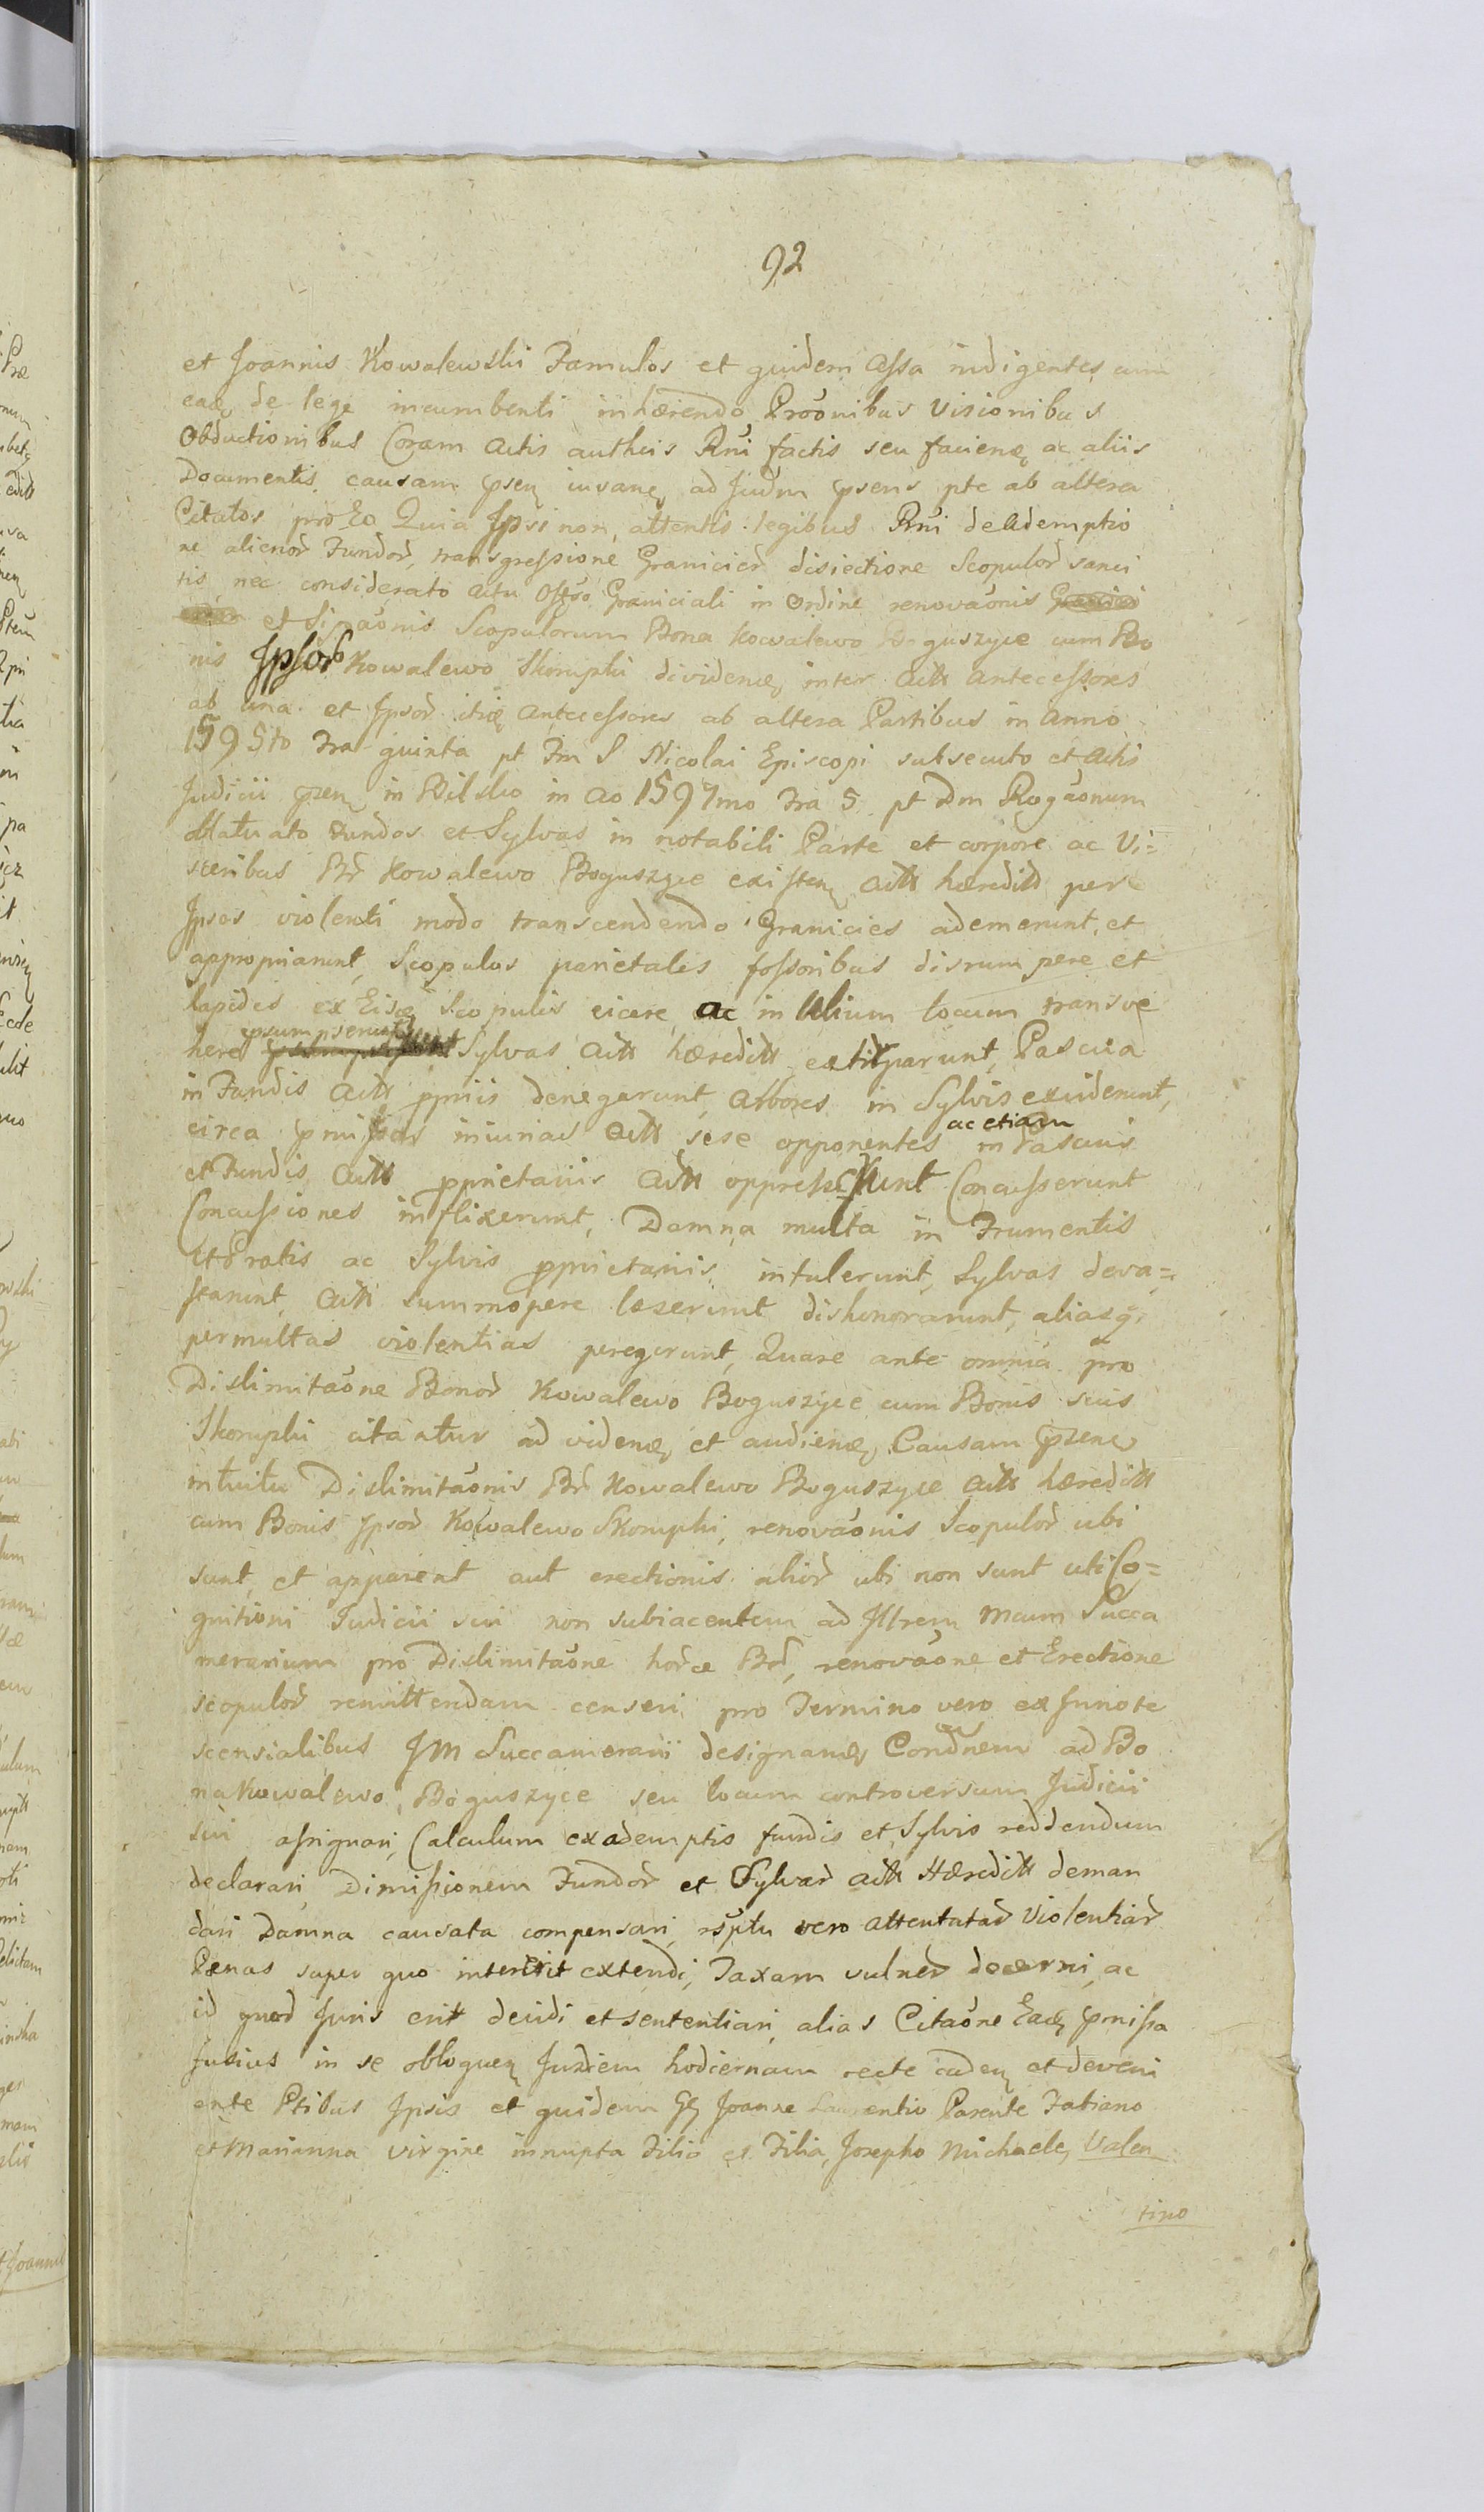 92
et Joannis Kowalewski Famulos et quidem assa indigentes cum
eaq de lege incumbenti inhærendo Prõõnibus Visionibus
Obductionibus Coram Actis authcis Rni factis seu faciend ac aliis
Documentis causam psen iuvan ad Judm psens pte ab altera
Citatos pro Eo Quia Ipsi non attentis legibus Rni de Ademptio
ne alienor Fundor, transgressione Granicier disiectione Scopulor sanci
tis nec considerato Actu Osso Graniciali in Ordine renovaõnis
et Sipaõnis Scopulorum Bona Kowalewo Boguszyce cum Bo
nis Ipsorb Kowalewo Skorupki dividend inter Actt Antecessores
ab una et Ipsor itiq Antecessores ab altera Partibus in Anno
1595to Fra quinta pt Fm S Nicolai Episcopi subsecuto et Actis
Judicii psen in Bilsko in Ao 1597mo Fra 5 pt Dm Rogaõnum
Fundos et Sylvas in notabili Parte et corpore ac Vi=
sceribus Br Kowalewo Boguszyce existen Actt hæreditt per
Ipsos violenti modo transcendendo Granicies ademerunt, et
appropriarunt, Scopulos parietales fossoribus disrumpere et
lapides ex Eisq Scopulis eicere ac in Alium locum transve
here psumpserunt Sylvas Actt hæreditt extirparunt, Pascua
in Fundis Actt ppriis denegarunt, Arbores in Sylvis exciderunt,
circa pmissas iniurias Actt sese opponentes ac etiam in Pascuis
et Fundis Actt pprietariis Actt oppresserunt Concusserunt
Concussiones inflixerunt, Damna multa in Frumentis
et Pratis ac Sylvis pprietariis intulerunt, Sylvas deva=
starunt, Actt summopere læserunt dishonorarunt, aliasq
permultas violentias peregerunt, Quare ante omnia pro
Dislimitaõne Bonor Kowalewo Boguszyce cum Bonis suis
Skorupki citantur ad videnq et audienq Causam psenq
intuitu Dislimitaõnis Br Kowalewo Boguszyce Actt hæreditt
cum Bonis Ipsor Kowalewo Skorupki, renovaõnis Scopulor ubi
sunt, et apparent aut erectionis alior ubi non sunt uti Co=
gnitioni Judicii sui non subiacentem ad Illrem Mcum Succa
merarium pro Dislimitaõne horce Br, renovaõne et Erectione
scopulor remittendam censeri pro Termino vero ex Innote
scensialibus JM Succamerarii designanq Condnem ad Bo
na Kowalewo, Boguszyce seu locum controversum Judicii
sui assignari, Calculum ex ademptis fundis et Sylvis reddendum
declarari Dimissionem Fundor et Sylvar Actt Hæreditt deman
dari Damna causata compensari, rsptu vero attentatar Violentiar
Pœnas super quo intererit extendi, Taxam vulner decerni, ac
id quod Juris erit decidi et sententiari, alias Citaõne Eaq pmissa
fusius in se obloquen Judiem hodiernam recte caden et deveni
ente Ptibus Ipsis et quidem Gg Joanne Laurentio Parente Fabiano
et Marianna virgine innupta Filio et Filia, Josepho Michaele, Valen
tino